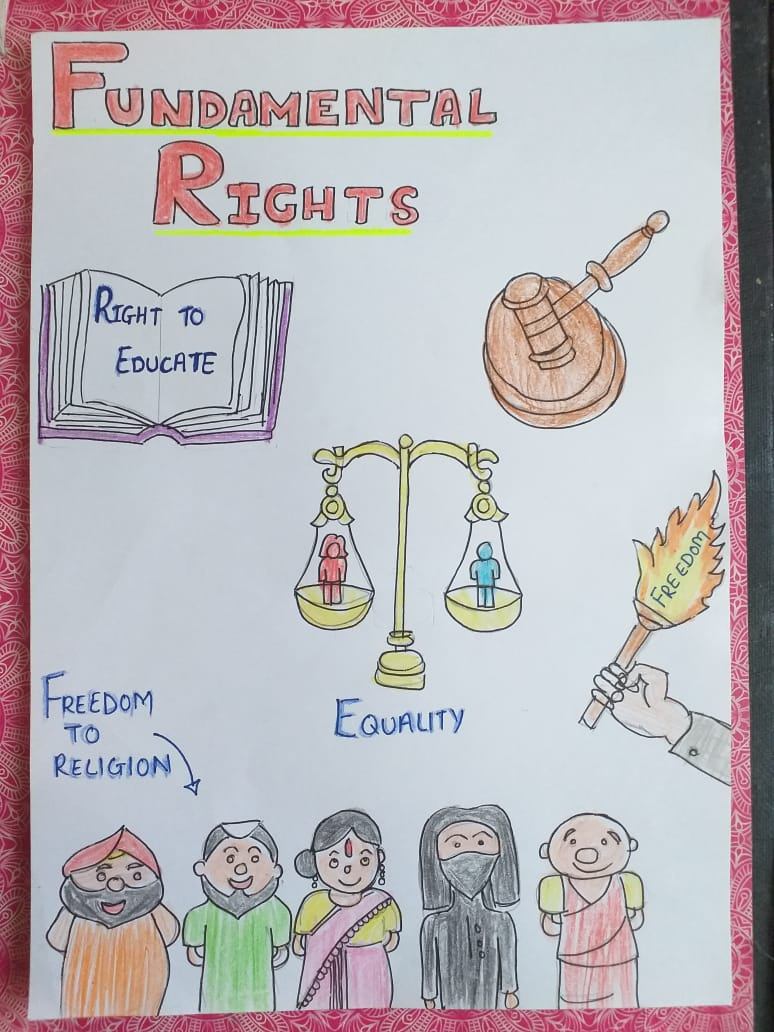 FUNDAMENTAL
RIGHTS
RIGHT TO
EDUCATE
FREEDOM
EQUALITY
FREEDOM
TO
RELIGION